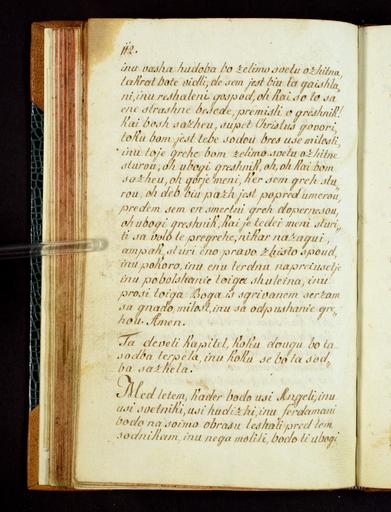 112.
inu vasha hudoba bo zelimo svetu ozhitna,
takrat bote vidli, de sem jest biu ta gaishla,
ni, inu reshaleni gospod, oh kai so to sa
ene strashne besede, premisli o greshnik!
kai bosh sazheu, supet Christus govori,
toku bom jest tebe sodou bres use milosti,
inu toje grehe bom zelimo svetu ozhitne
sturou, oh ubogi greshnik, oh, oh kai bom
sazheu, oh gorje meni, ker sem greh stu,
rou, oh deb biu pazh jest popred umerou,
preden sem en smertni greh dopernesou,
oh ubogi greshnik, kai je tedei meni sturi,
ti sa volo te pregrehe, nikar nazagui,
ampak, sturi eno pravo zhisto spoud,
inu pokoro, inu enu terdnu napreiusetje
inu pobolshanie toiga shuleina, inu
prosi toiga Boga is sgrivanem serzam
sa gnado, milost, inu sa odpushanie gre,
hou. Amen.
Ta deveti kapitel, koku dougu bo ta
sodba terpela, inu koku se bo ta sod,
ba sazhela.
Med letem, kader bodo usi Angeli, inu
usi svetniki, usi hudizhi, inu ferdamani
bodo na soimo obrasu leshali pred tem
sodnikam, inu nega molili, bodo ti ubogi